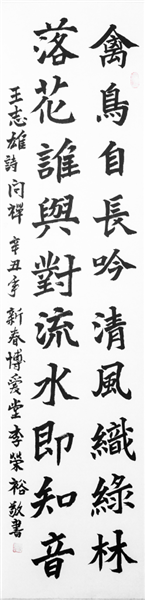 禽鳥自長吟清風織綠林
落花誰與對流水即知音
王志雄詩問禪辛丑年新春博愛堂李榮裕敬書